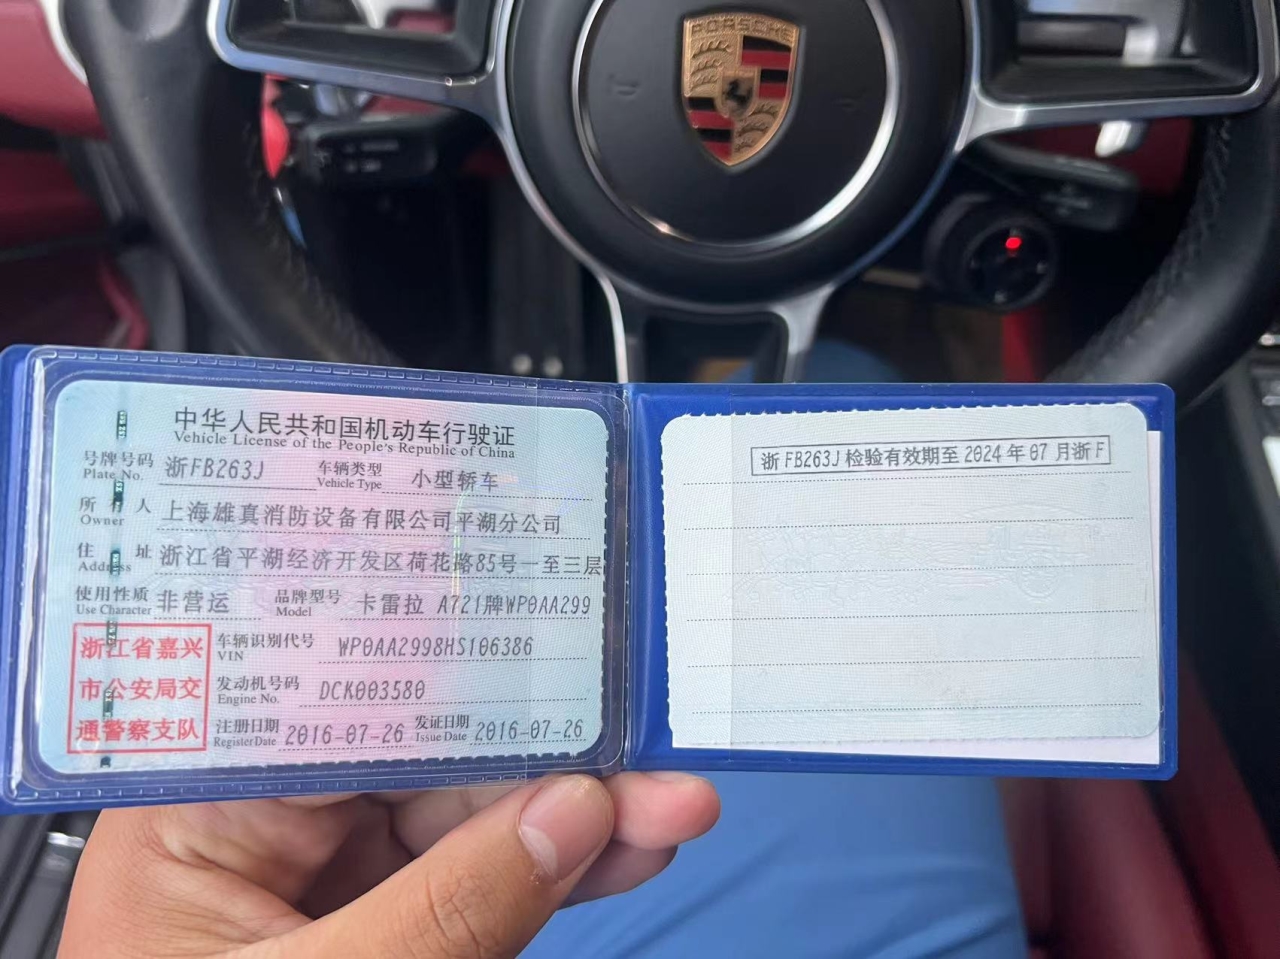 PORSCHE
中华人民共和国机动车行驶证
Vehicle License of the People's Republic of China
号牌号码 浙FB263J 车辆类型 小型轿车
Plate No. Vehicle Type
所有人 上海雄真消防设备有限公司平湖分公司
Owner
住址 浙江省平湖经济开发区荷花路85号一至三层
Address
使用性质 非营运 品牌型号 卡雷拉 A721牌WP0AA299
Use Character Model
浙江省嘉兴
市公安局交
通警察支队
车辆识别代号 WP0AA2998HS106386
VIN
发动机号码 DCK003580
Engine No.
注册日期 2016-07-26 发证日期 2016-07-26
Register Date Issue Date
浙FB263J检验有效期至2024年07月浙F